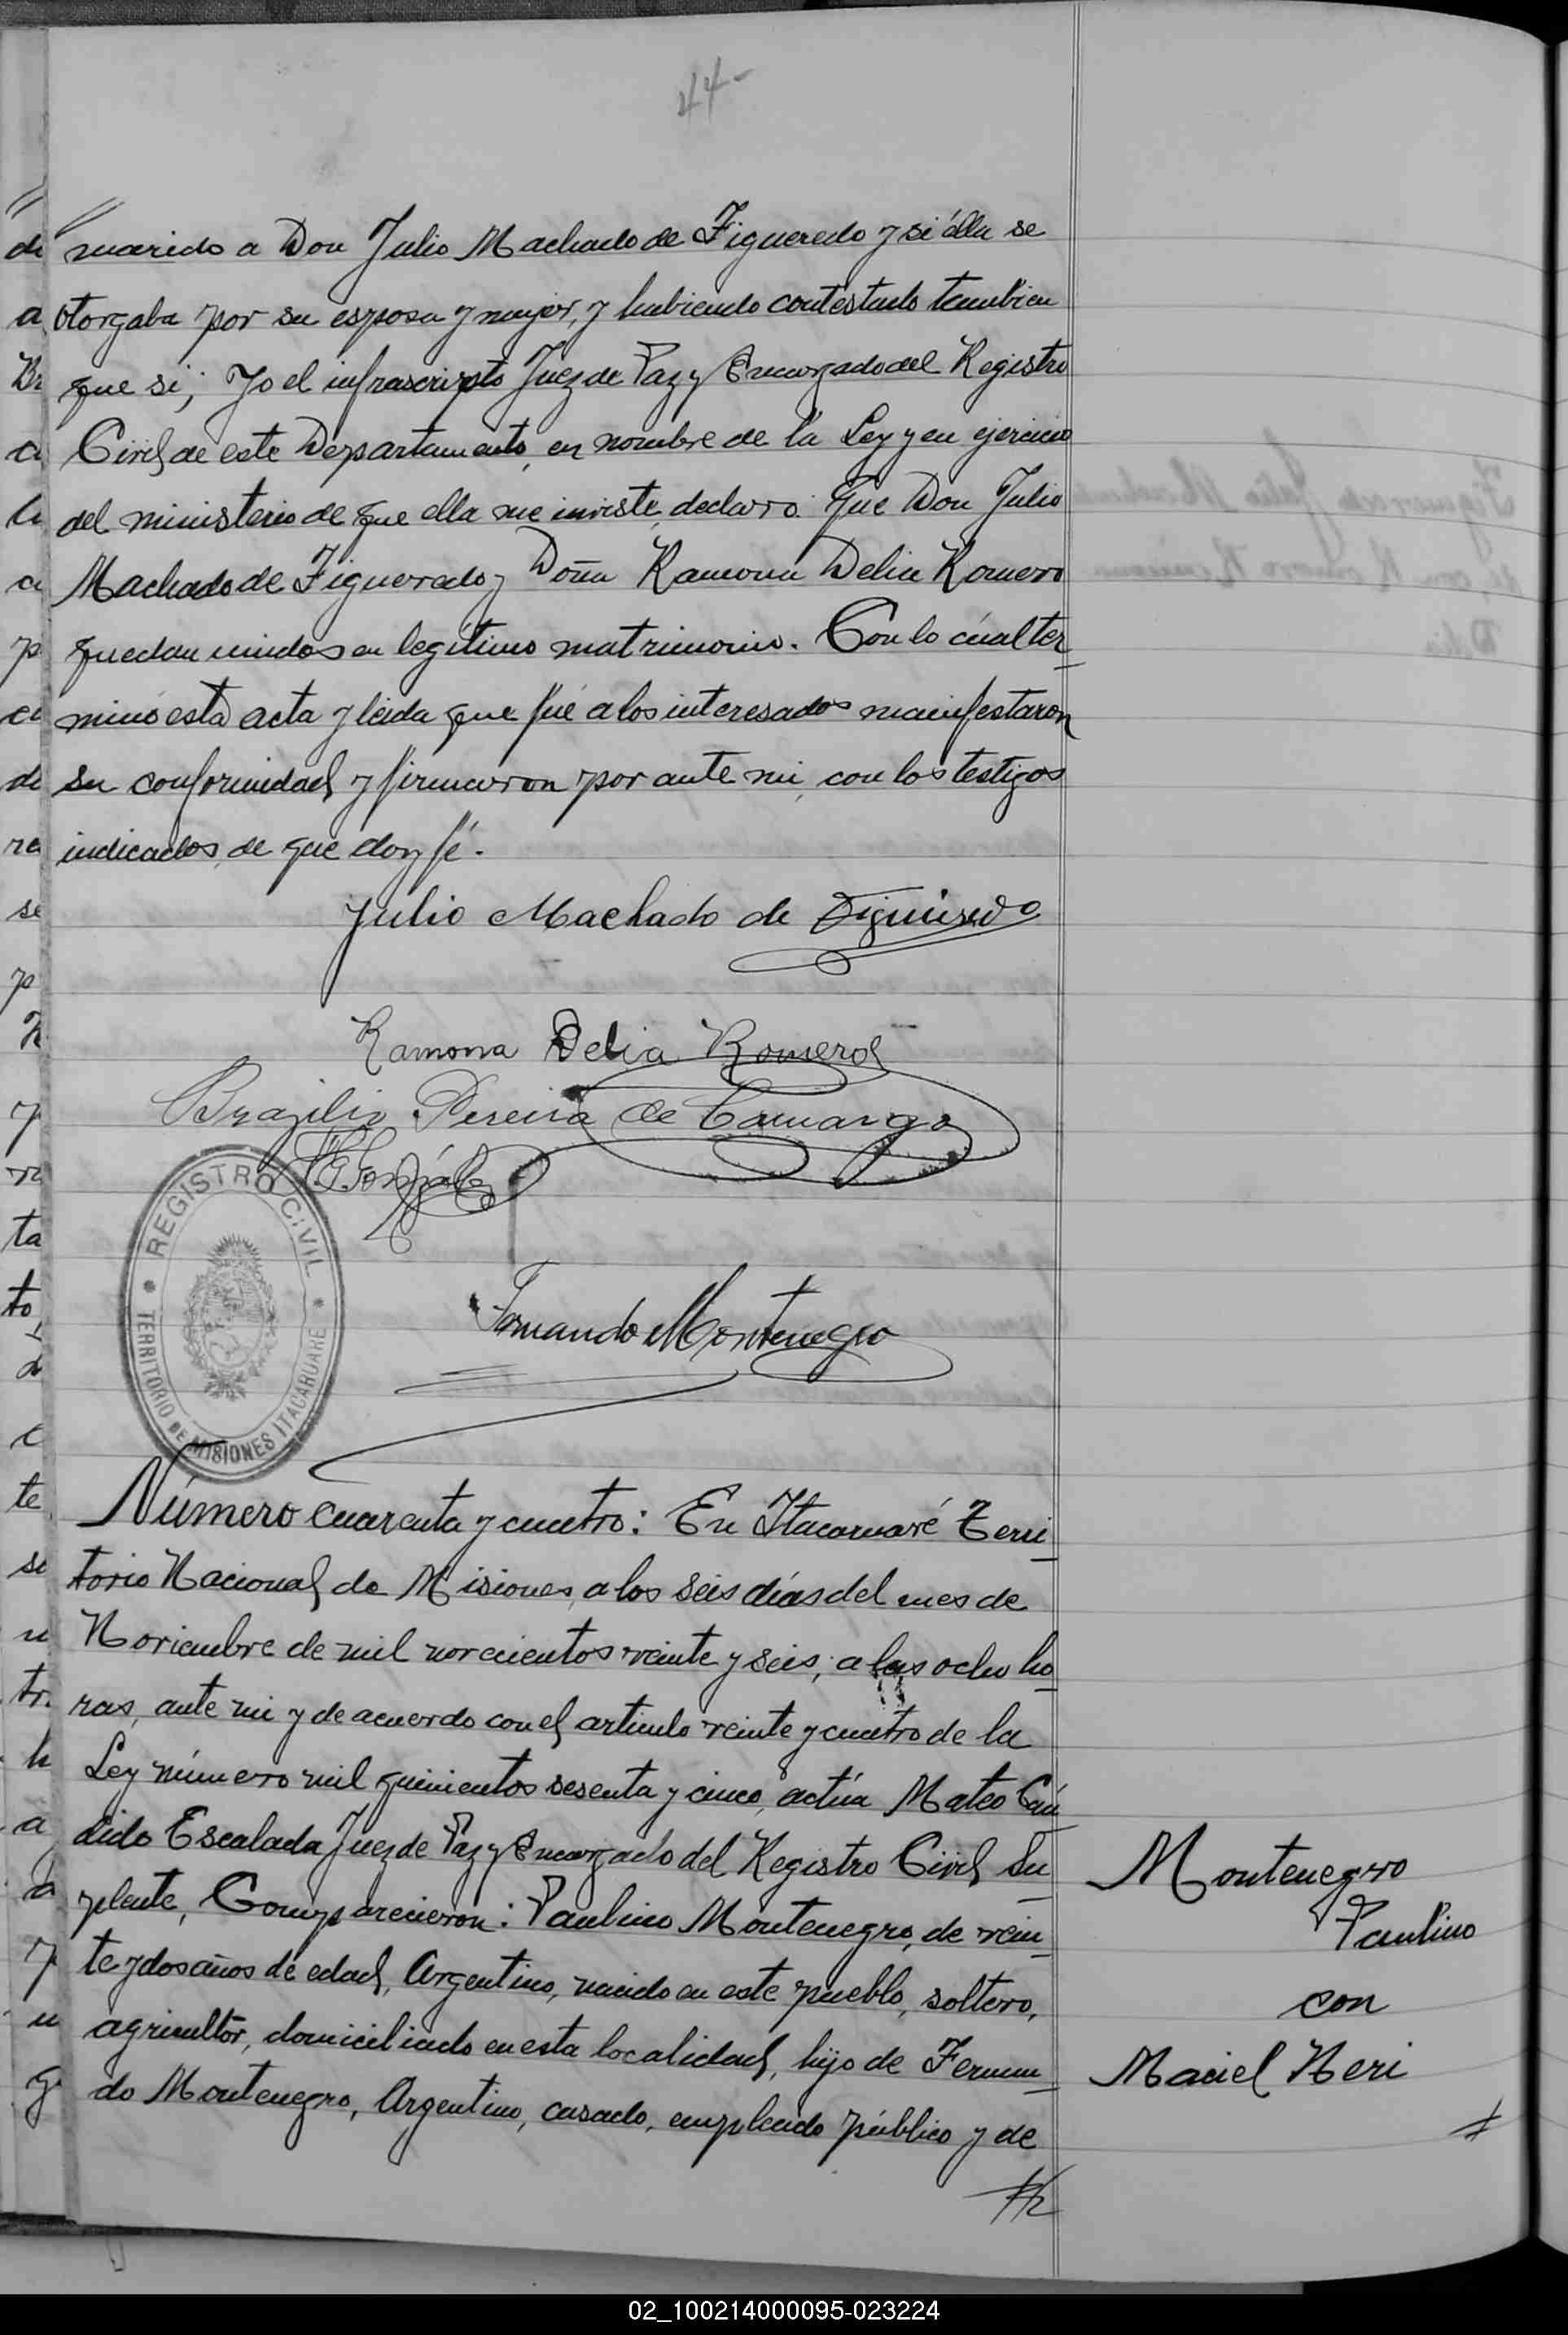 44-
// marido a Don Julio Machado de Figueredo y si élla se
otorgaba por su esposa y mujer, y habiendo contestado tambien
que si; Yo el infrascripto Juez de Paz y Encargado del Registro
Civil de este Departamento, en nombre de la Ley y en ejercicio
del ministerio de que ella me inviste, declaro: Que Don Julio
Machado de Figueredo y Doña Ramona Delia Romero
quedan unidos en legítimo matrimonio. Con lo cúal ter
minó esta acta y leida que fué a los interesados manifestaron
su conformidad y firmaron por ante mi, con los testigos
indicados, de que doy fé.
Julio Machado de Figueiredo
Ramona Delia Romero
Brazilio Pereira de Camargo
González
Fernando Montenegro
REGISTRO CIVIL
TERRITORIO DE MISIONES ITACARUARE
Número cuarenta y cuatro: En Itacaruaré Terri
torio Nacional de Misiones, a los seis días del mes de
Noviembre de mil novecientos veinte y seis, a las ocho ho
ras, ante mi y de acuerdo con el articulo veinte y cuatro de la
Ley número mil quinientos sesenta y cinco, actúa Mateo Cán
dido Escalada Juez de Paz y Encargado del Registro Civil Su
plente, Comparecieron: Paulino Montenegro, de vein
te y dos años de edad, Argentino, nacido en este pueblo, soltero,
agricultor, domiciliado en esta localidad, hijo de Fernan
do Montenegro, Argentino, casado, empleado público y de
//
Montenegro
Paulino
con
Maciel Neri
02_100214000095-023224